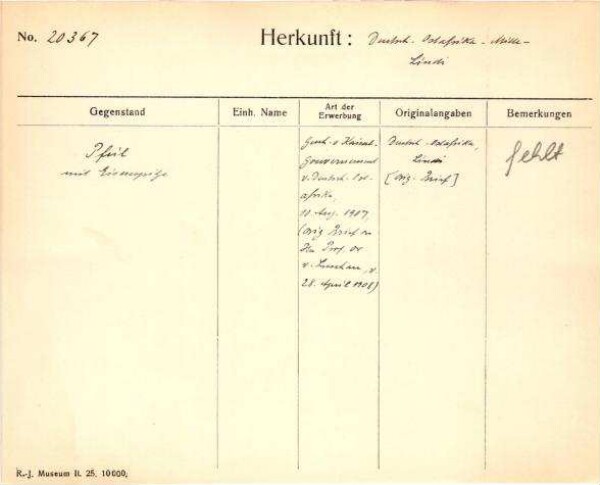 No. 20367 Herkunft: Deutsch-Ostafrika - Mitte -
Lindi
Gegenstand Einh. Name Art der Erwerbung Originalangaben Bemerkungen
Pfeil
mit Eisenspitze
Gesch. v. Kaiserl.
Gouvernement
v. Deutsch-Ost-
afrika,
10. Aug. 1907,
(Orig. Brief an
Hn Prof. Dr
v. Luschan, v.
28. April 1908)
Deutsch-Ostafrika,
Lindi
[Orig. Brief]
fehlt
R.-J. Museum II. 25. 10000,